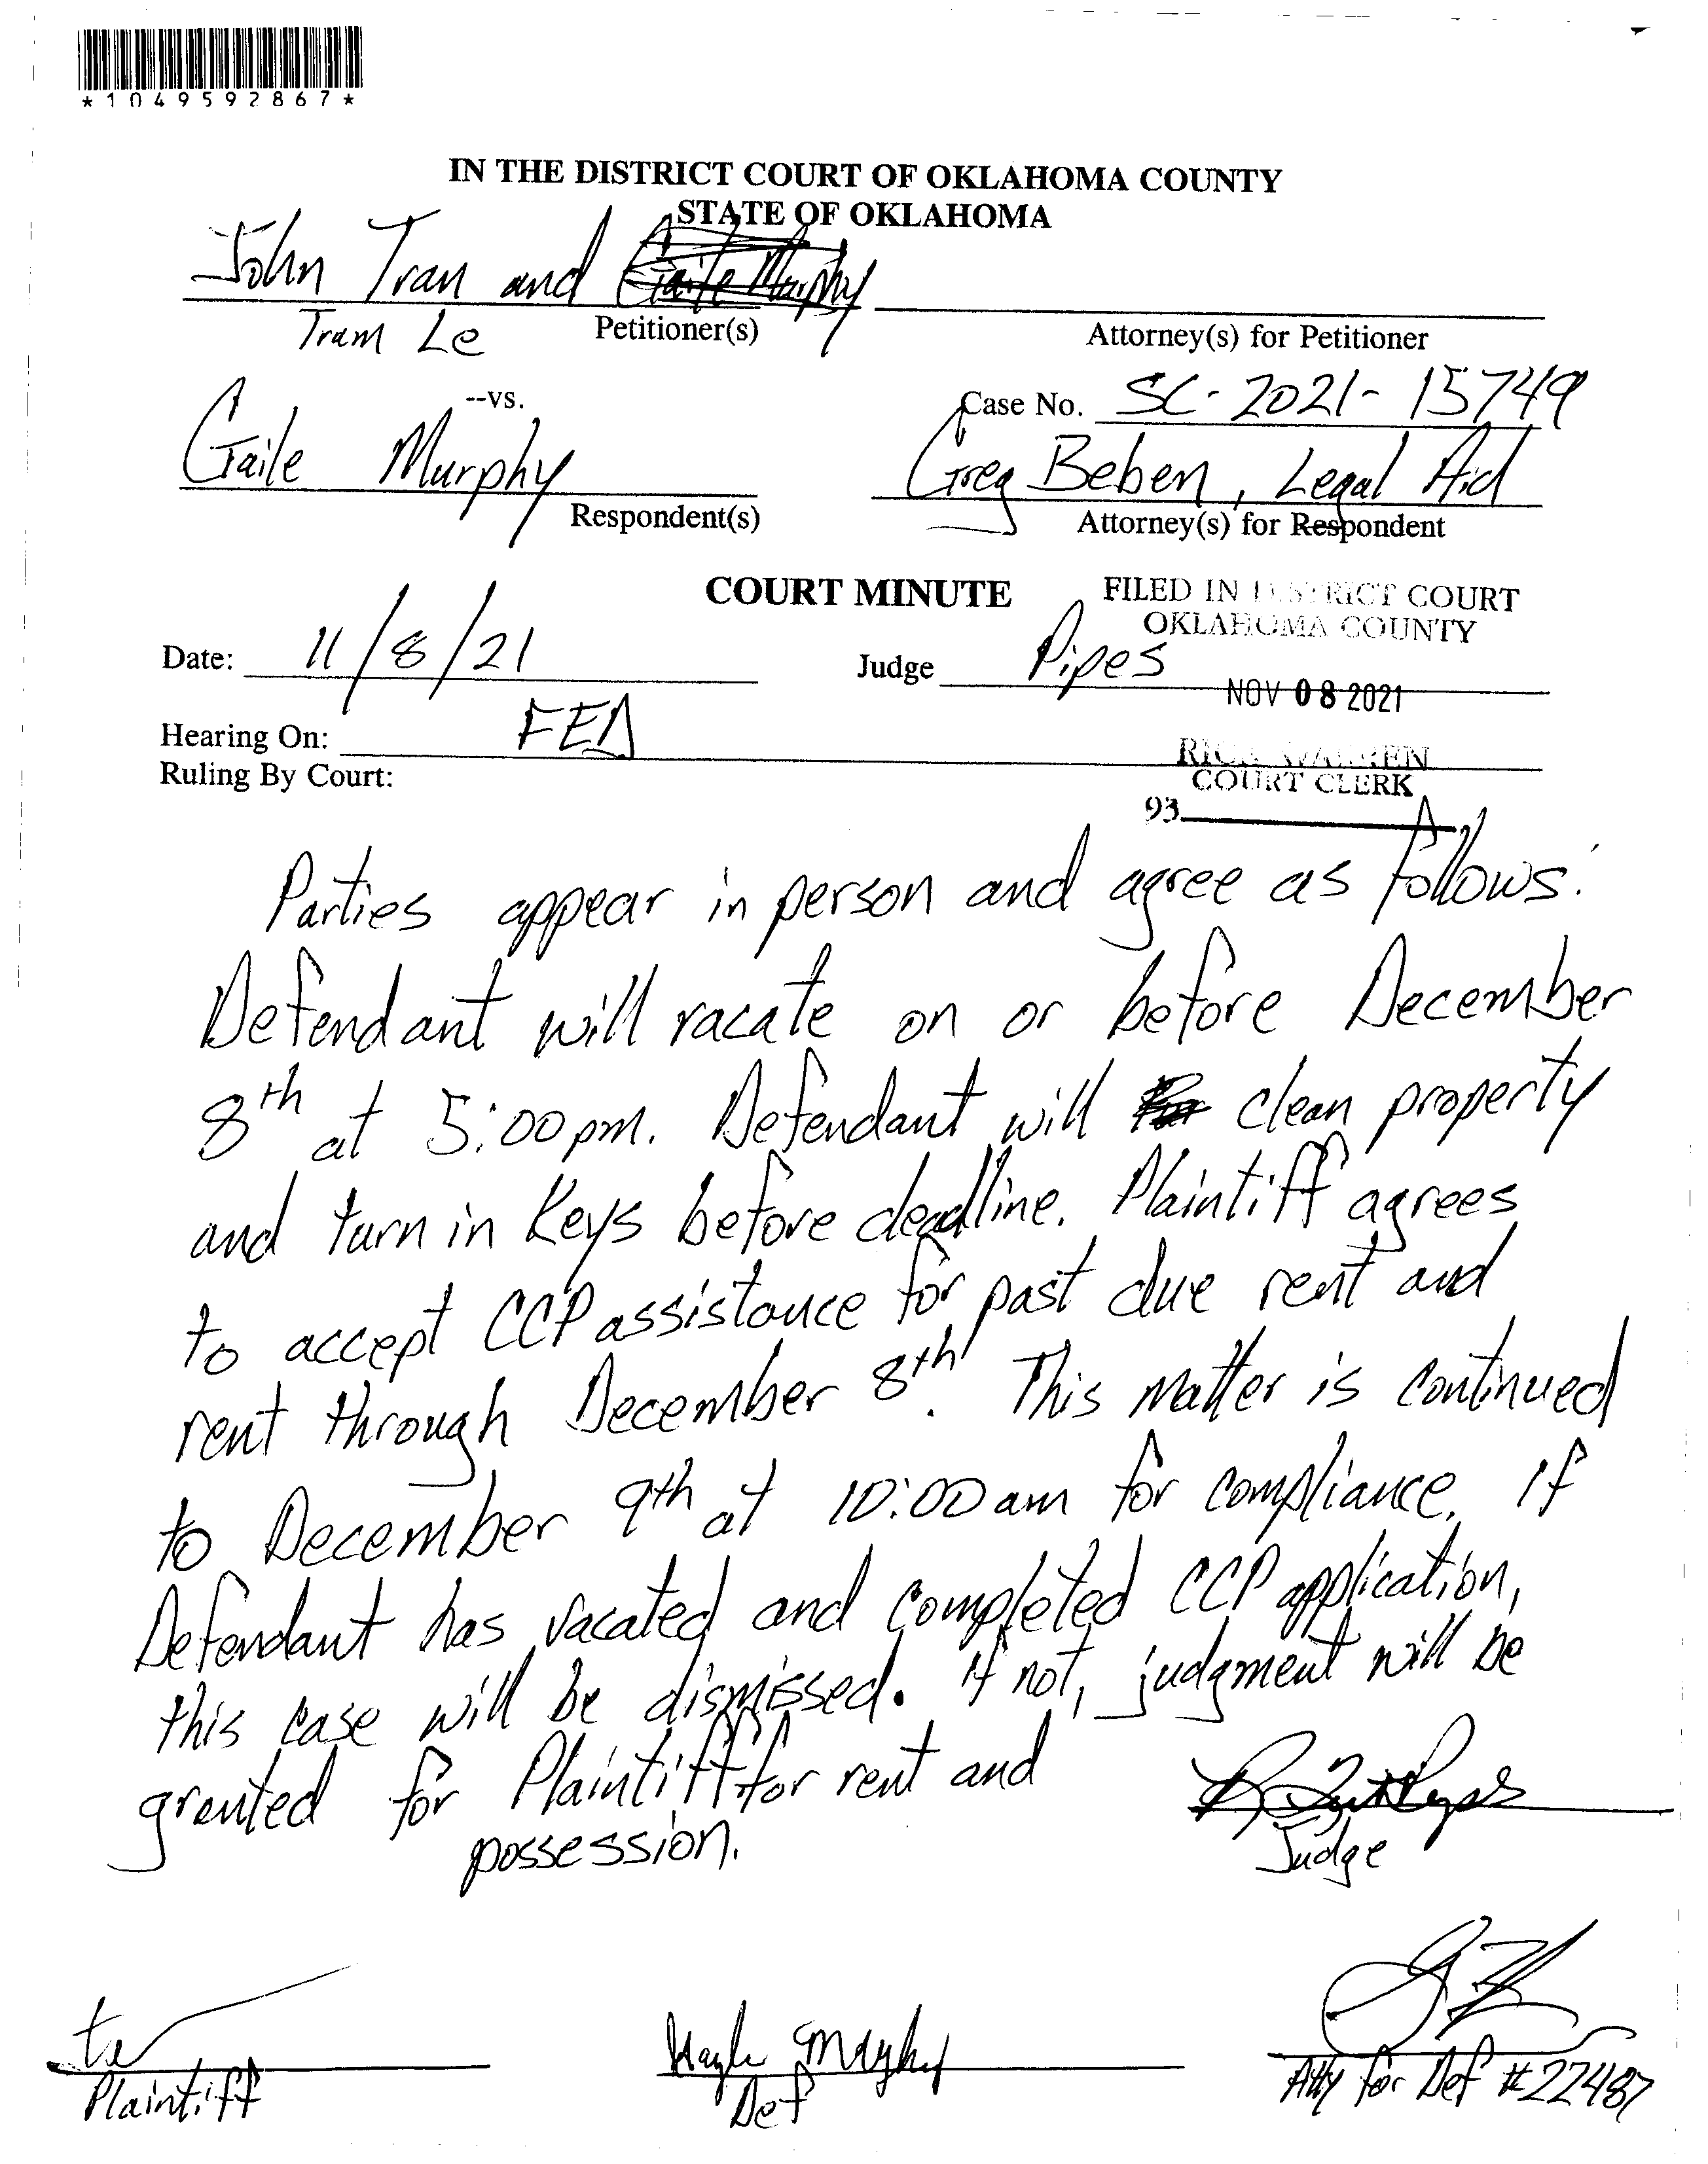 *1049592867*
IN THE DISTRICT COURT OF OKLAHOMA COUNTY
STATE OF OKLAHOMA
John Tran and Gaile Murphy
Tram Le
Petitioner(s)
Attorney(s) for Petitioner
--vs.
Case No. SC-2021-15749
Gaile Murphy
Greg Beben, Legal Aid
Respondent(s)
Attorney(s) for Respondent
COURT MINUTE
FILED IN DISTRICT COURT
OKLAHOMA COUNTY
Date: 11/8/21
Judge Pipes
NOV 08 2021
Hearing On: FED
RICK WARREN
Ruling By Court:
COURT CLERK
93
Parties appear in person and agree as follows:
Defendant will vacate on or before December
8th at 5:00 pm. Defendant will clean property
and turn in keys before deadline. Plaintiff agrees
to accept CCP assistance for past due rent and
rent through December 8th. This matter is continued
to December 9th at 10:00 am for compliance. If
Defendant has vacated and completed CCP application,
this case will be dismissed. If not, judgment will be
granted for Plaintiff for rent and
possession.
Judge
Plaintiff
Def
Atty for Def #22487